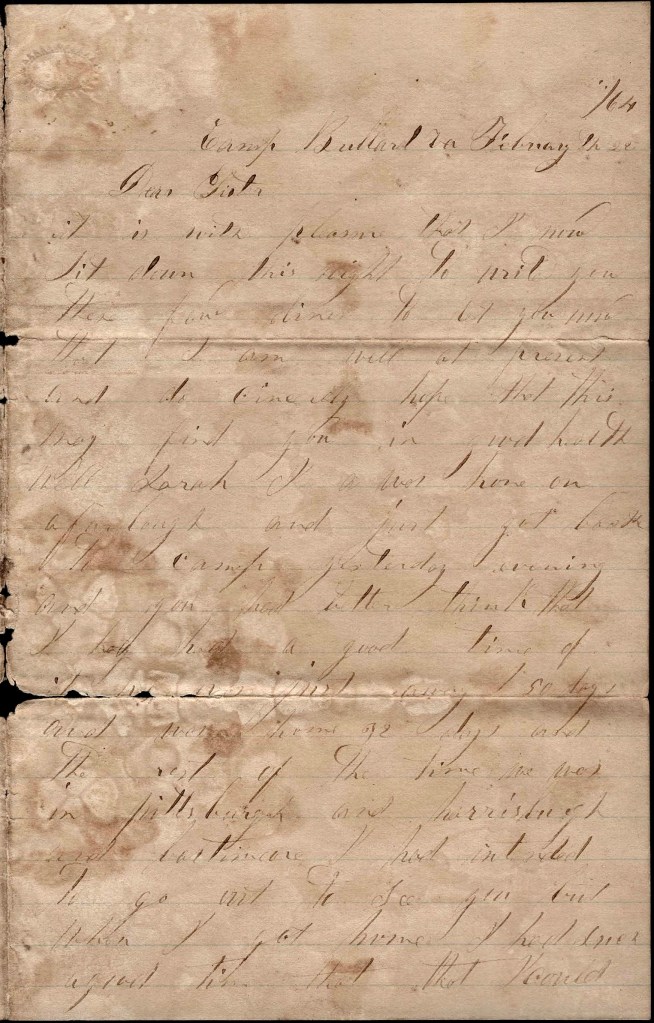 /64
Camp Bullard Va Febuary the
Dear Sister
it is with plasure that I now
Sit down this night to writ you
thes few lines to let you now
that I am well at present
and do cincerly hope that this
may find you in good health
well Sarah I a was home on
a furlough and just got back
to camp yesterday evening
and you had better think that
I hav had a good time of
it we wer just away 50 days
and wer home 32 days and
the rest of the time we wer
in pittsburgh and harrisburgh
and baltimore I had intended
to go out to See you but
when I got home I had such
a good time that that I could